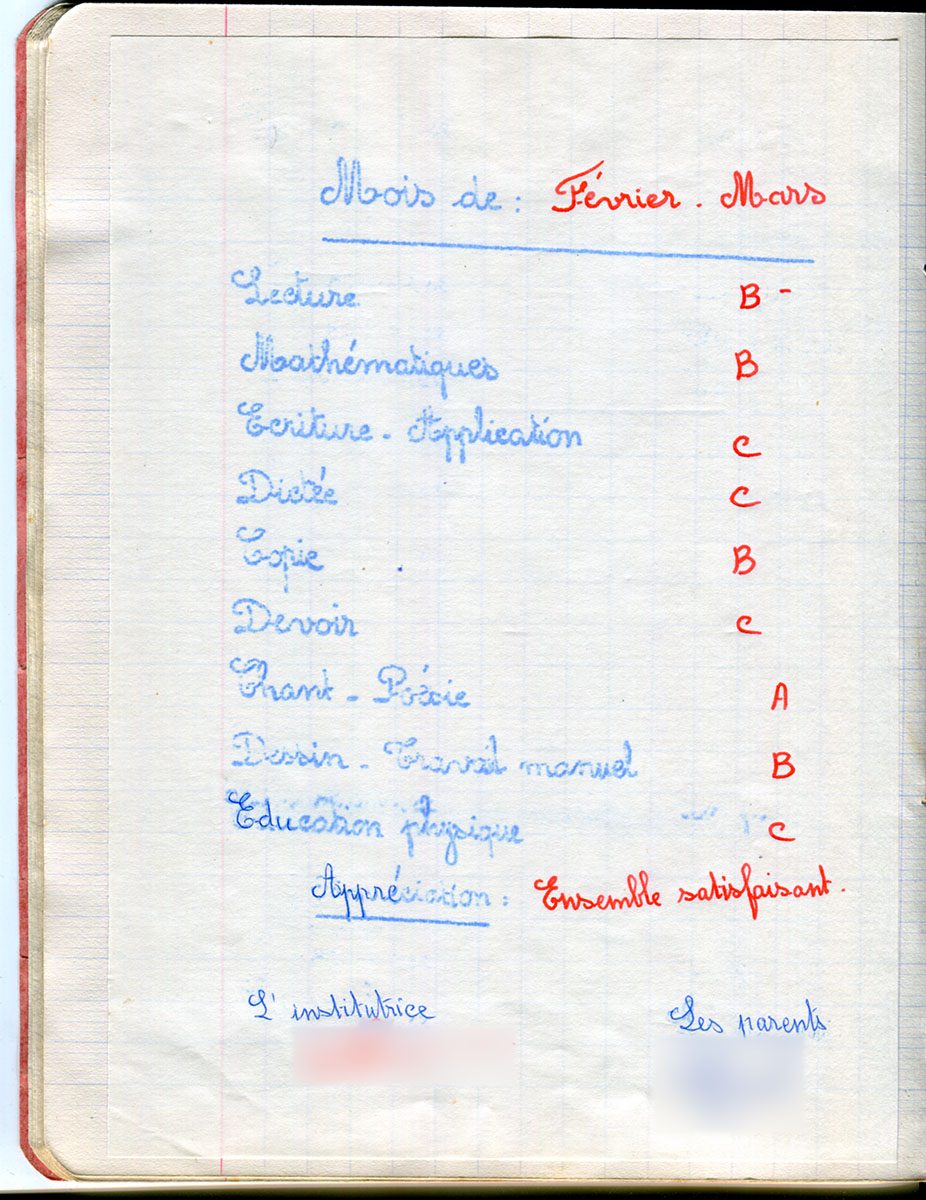 Mois de : Février . Mars
Lecture B -
Mathématiques B
Ecriture - Application C
Dictée C
Copie B
Devoir C
Chant - Poésie A
Dessin - Travail manuel B
Education physique C
Appréciation : Ensemble satisfaisant.
L'institutrice Les parents